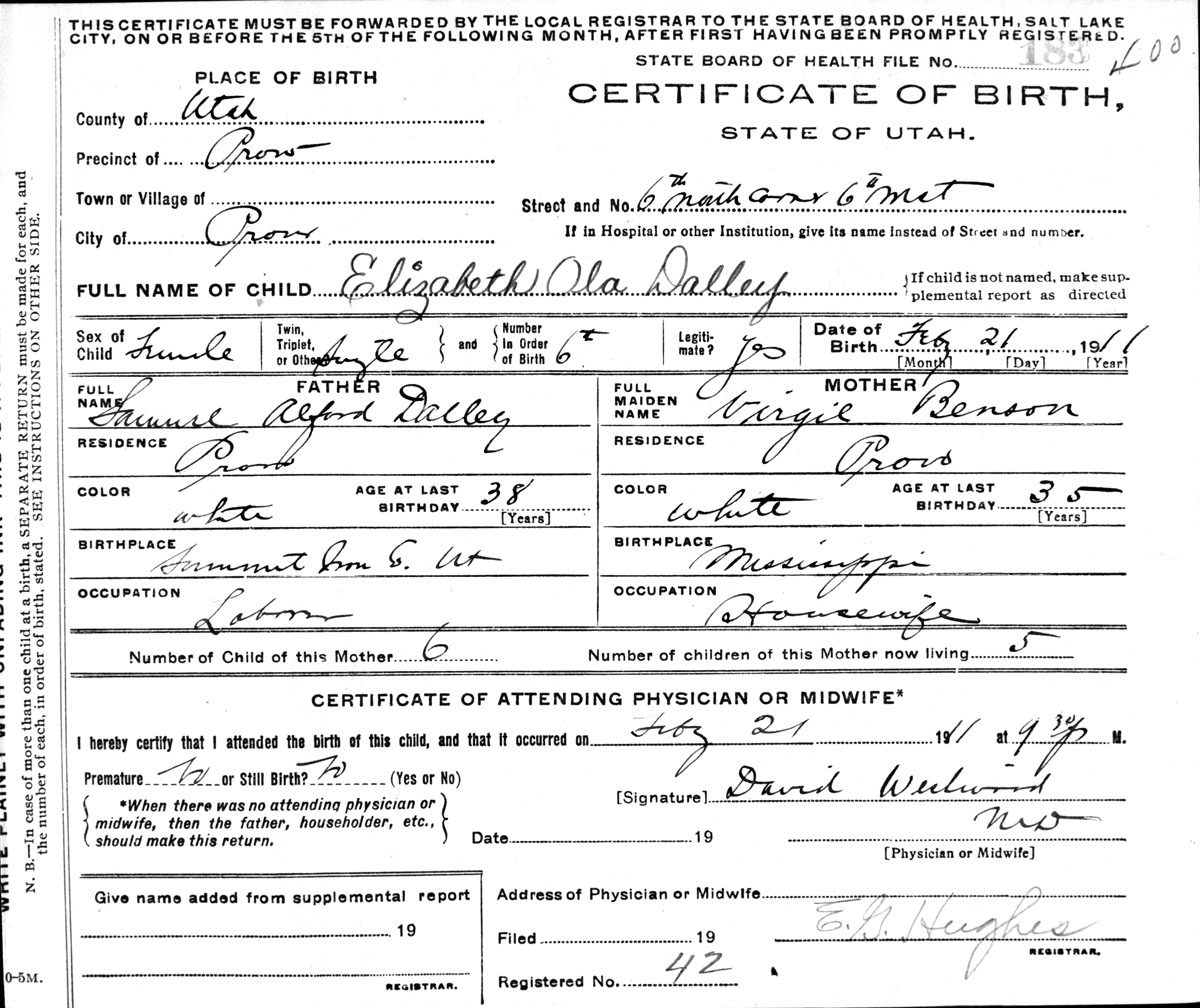 THIS CERTIFICATE MUST BE FORWARDED BY THE LOCAL REGISTRAR TO THE STATE BOARD OF HEALTH, SALT LAKE
CITY, ON OR BEFORE THE 5TH OF THE FOLLOWING MONTH, AFTER FIRST HAVING BEEN PROMPTLY REGISTERED.
STATE BOARD OF HEALTH FILE No. 183 400
PLACE OF BIRTH
CERTIFICATE OF BIRTH,
STATE OF UTAH.
County of Utah
Precinct of Provo
Town or Village of
Street and No. 6th north corner 6th West
City of Provo
If in Hospital or other Institution, give its name instead of Street and number.
FULL NAME OF CHILD Elizabeth Ola Dalley
{If child is not named, make sup-
plemental report as directed
Sex of Child Female
Twin, Triplet, or Other Single } and { Number In Order of Birth 6th
Legiti-mate? Yes
Date of Birth Feb 21, 1911
[Month] [Day] [Year]
FATHER
FULL NAME Samuel Alford Dalley
RESIDENCE Provo
COLOR white
AGE AT LAST BIRTHDAY 38
[Years]
BIRTHPLACE Summit Iron Ut
OCCUPATION Laborer
MOTHER
FULL MAIDEN NAME Virgil Benson
RESIDENCE Provo
COLOR white
AGE AT LAST BIRTHDAY 35
[Years]
BIRTHPLACE Mississippi
OCCUPATION Housewife
Number of Child of this Mother 6
Number of children of this Mother now living 5
CERTIFICATE OF ATTENDING PHYSICIAN OR MIDWIFE*
I hereby certify that I attended the birth of this child, and that it occurred on Feby 21 1911 at 9 30 P M.
Premature No or Still Birth? No (Yes or No)
*When there was no attending physician or
midwife, then the father, householder, etc.,
should make this return.
[Signature] David Westwood
MD
Date 19
[Physician or Midwife]
Give name added from supplemental report
19
REGISTRAR.
Address of Physician or Midwife
Filed 19
E.G. Hughes
REGISTRAR.
Registered No. 42
N. B.—In case of more than one child at a birth, a SEPARATE RETURN must be made for each, and
the number of each, in order of birth, stated. SEE INSTRUCTIONS ON OTHER SIDE.
0-5M.